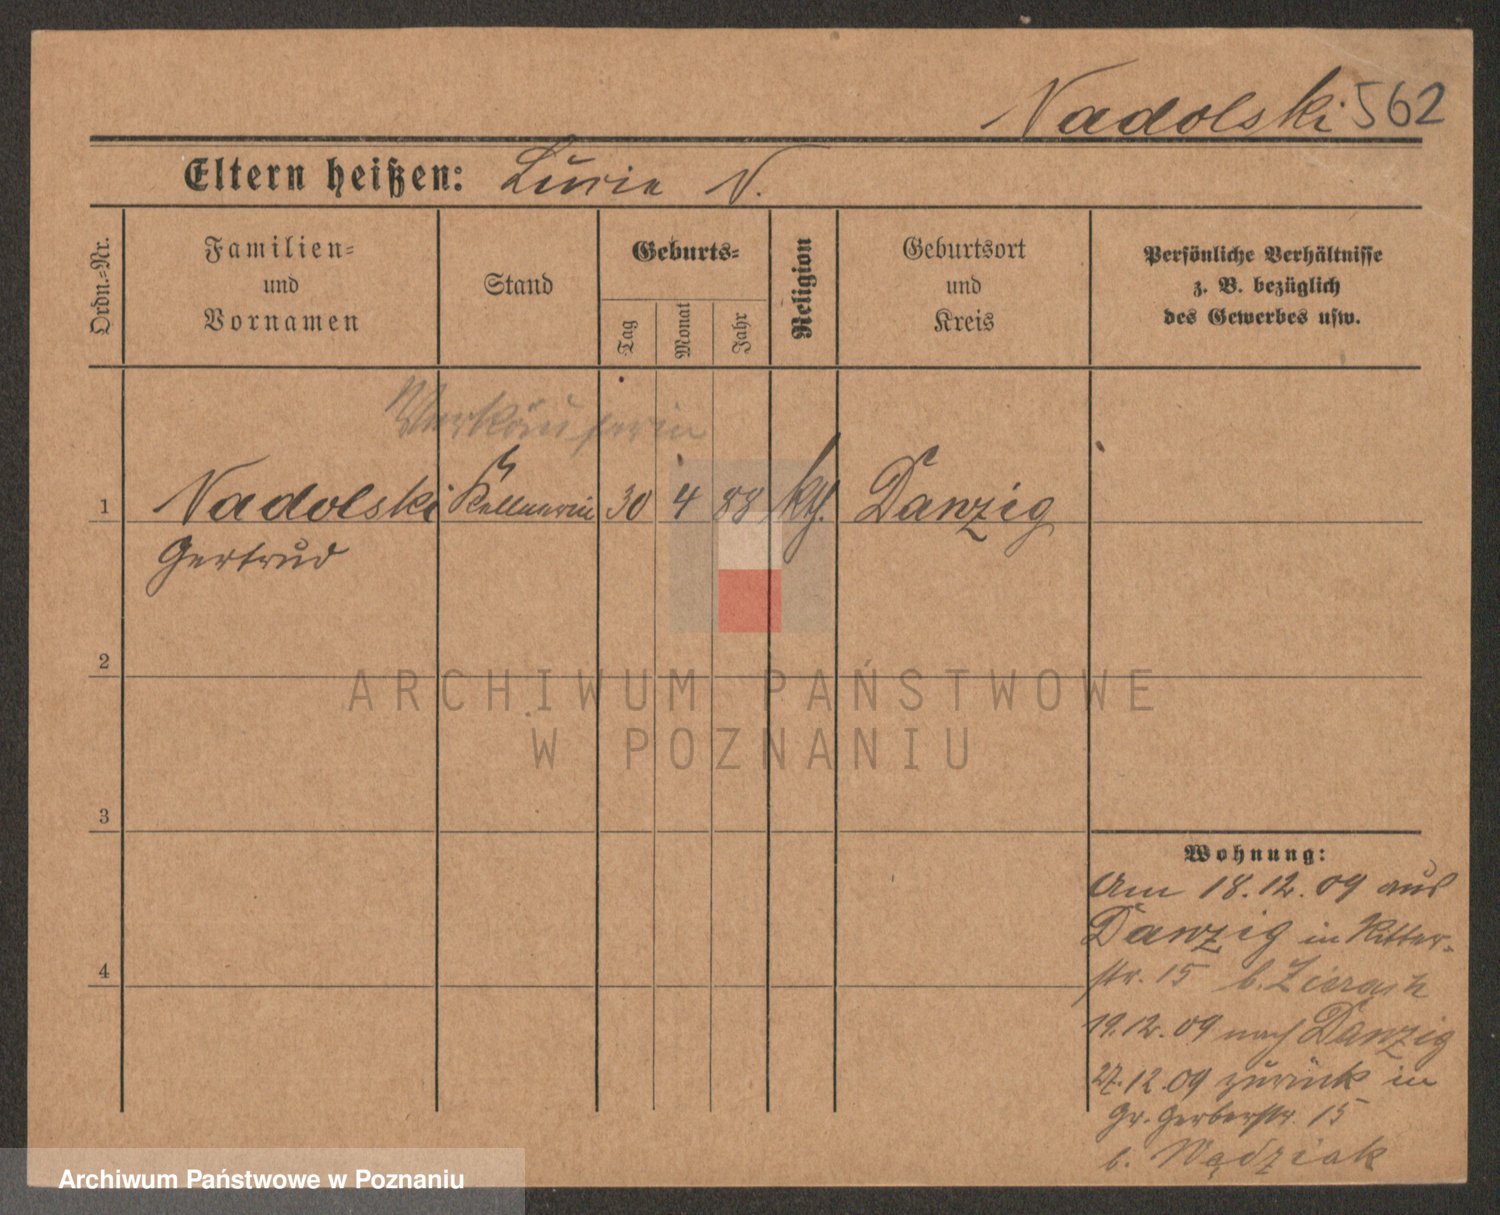 Nadolski 562
Eltern heißen: Luzie N.
Ordn.=Nr.
Familien=
und
Vornamen
Stand
Geburts=
Tag
Monat
Jahr
Religion
Geburtsort
und
Kreis
Persönliche Verhältnisse
z. B. bezüglich
des Gewerbes usw.
Verkäuferin
1 Nadolski Kellnerin 30 4 88 kth. Danzig
Gertrud
2
3
4
Wohnung:
Am 18.12.09 aus
Danzig in Ritter=
str. 15 b.
19.12.09 nach Danzig
27.12.09 zurück in
Gr. Gerberstr. 15
b. Wądziak
ARCHIWUM PAŃSTWOWE
W POZNANIU
Archiwum Państwowe w Poznaniu